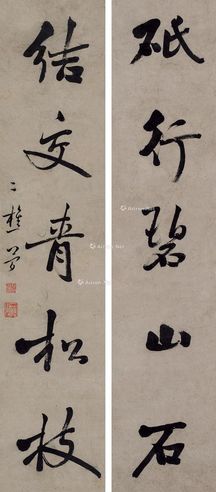 砥行碧山石
结交青松枝
二樵简